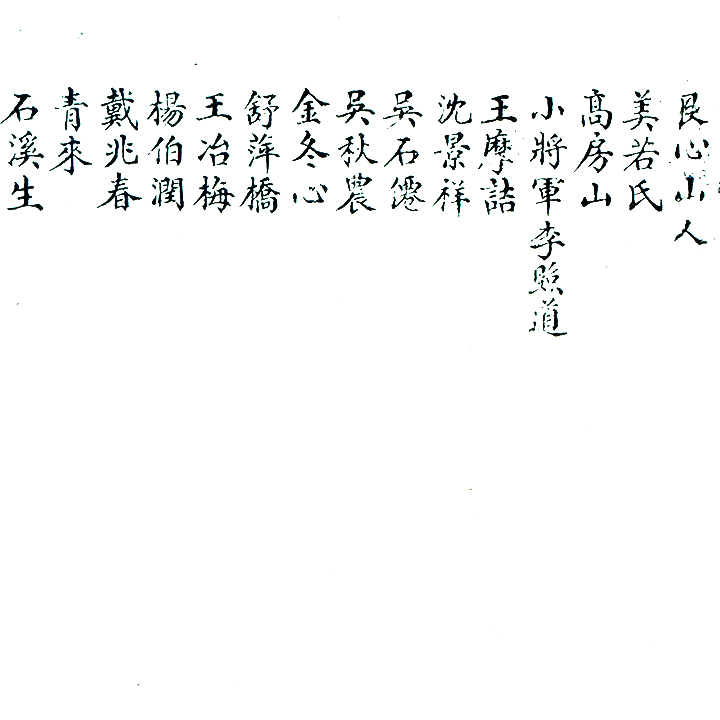 艮心山人
美若氏
高房山
小將軍李昭道
王摩詰
沈景祥
吳石僊
吳秋農
金冬心
舒萍橋
王冶梅
楊伯潤
戴兆春
青來
石溪生